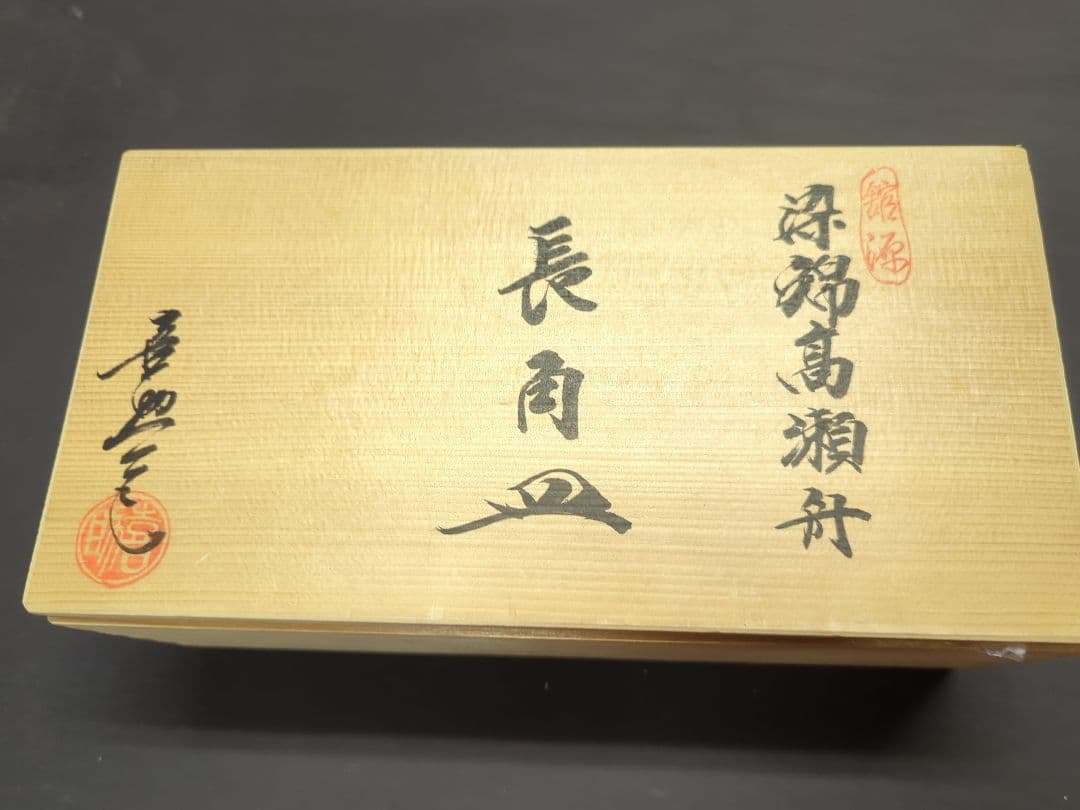 舘源
染錦高瀬舟
長角皿